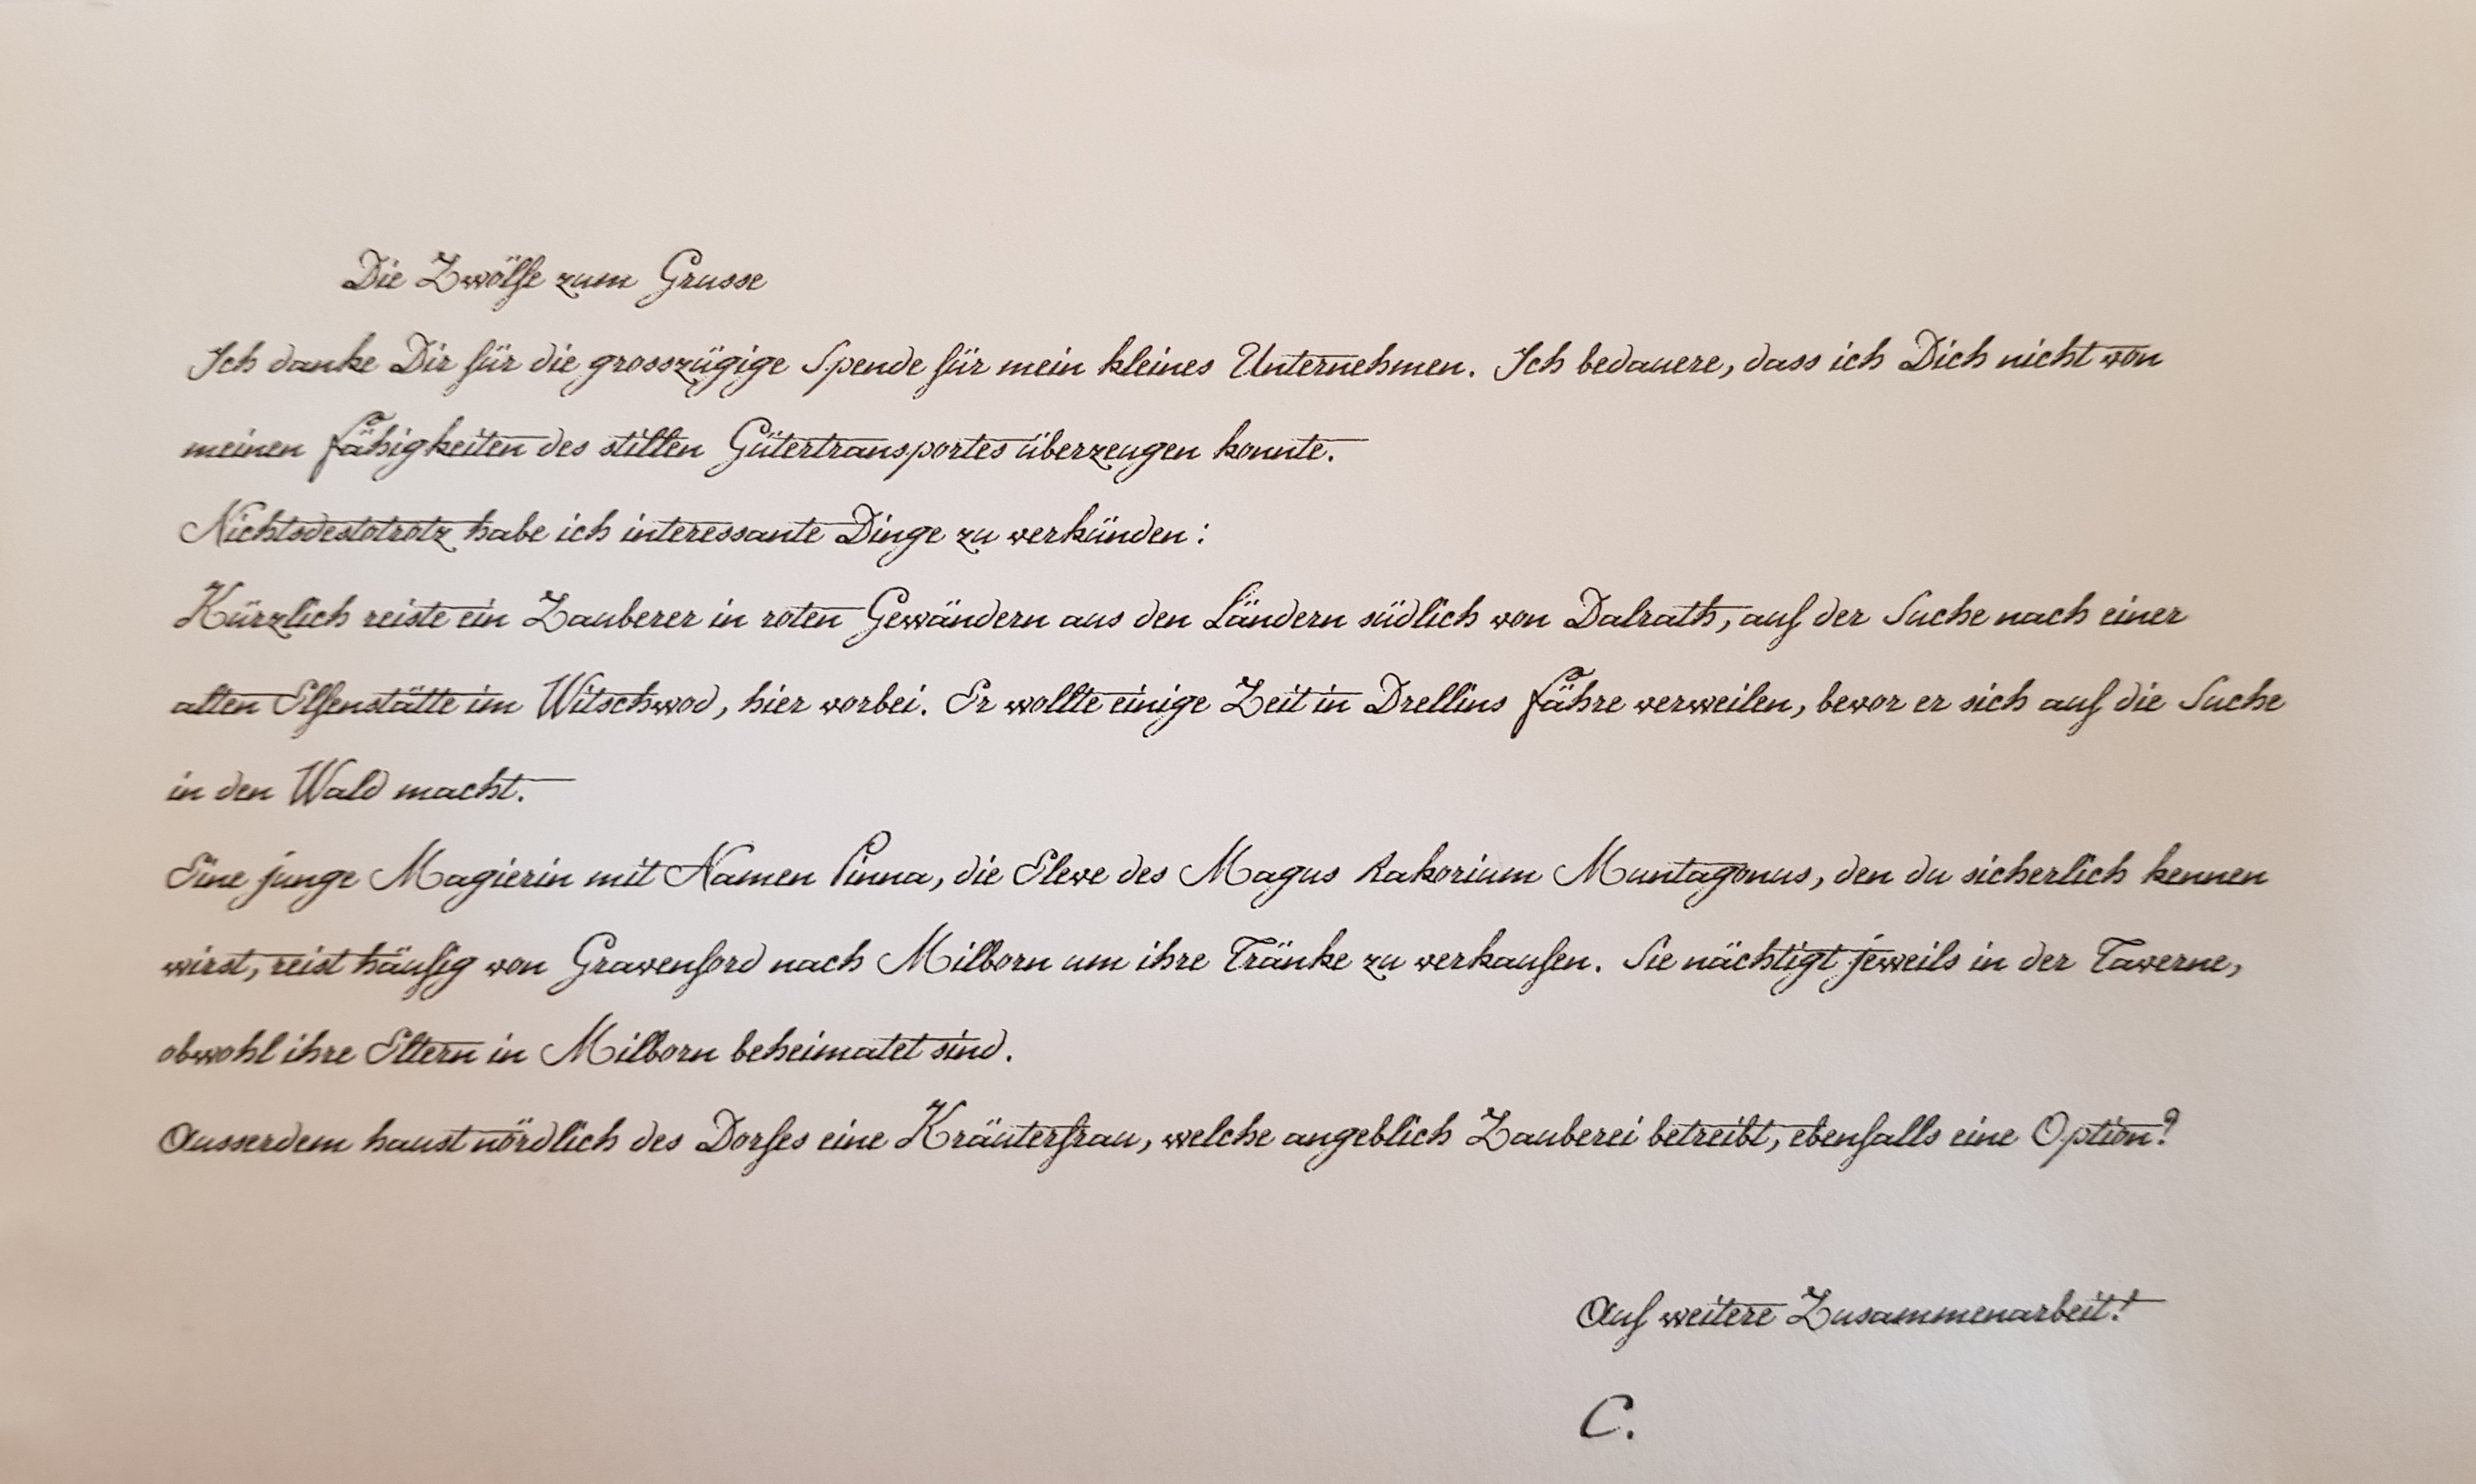 Die Zwölfe zum Grusse
Ich danke Dir für die grosszügige Spende für mein kleines Unternehmen. Ich bedauere, dass ich Dich nicht von
meinen Fähigkeiten des stillen Gütertransportes überzeugen konnte.
Nichtsdestotrotz habe ich interessante Dinge zu verkünden:
Kürzlich reiste ein Zauberer in roten Gewändern aus den Ländern südlich von Dalrath, auf der Suche nach einer
alten Elfenstätte im Witschwod, hier vorbei. Er wollte einige Zeit in Drellins Fähre verweilen, bevor er sich auf die Suche
in den Wald macht.
Eine junge Magierin mit Namen Pinna, die Eleve des Magus Rakorium Muntagonus, den du sicherlich kennen
wirst, reist häufig von Gravenford nach Milborn um ihre Tränke zu verkaufen. Sie nächtigt jeweils in der Taverne,
obwohl ihre Eltern in Milborn beheimatet sind.
Ausserdem haust nördlich des Dorfes eine Kräuterfrau, welche angeblich Zauberei betreibt, ebenfalls eine Option?
Auf weitere Zusammenarbeit!
C.